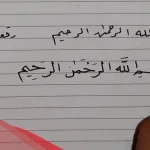 لله الرحمن الرحيم رقعة
بسم اللَّهِ الرَّحْمَنِ الرَّحِيمِ